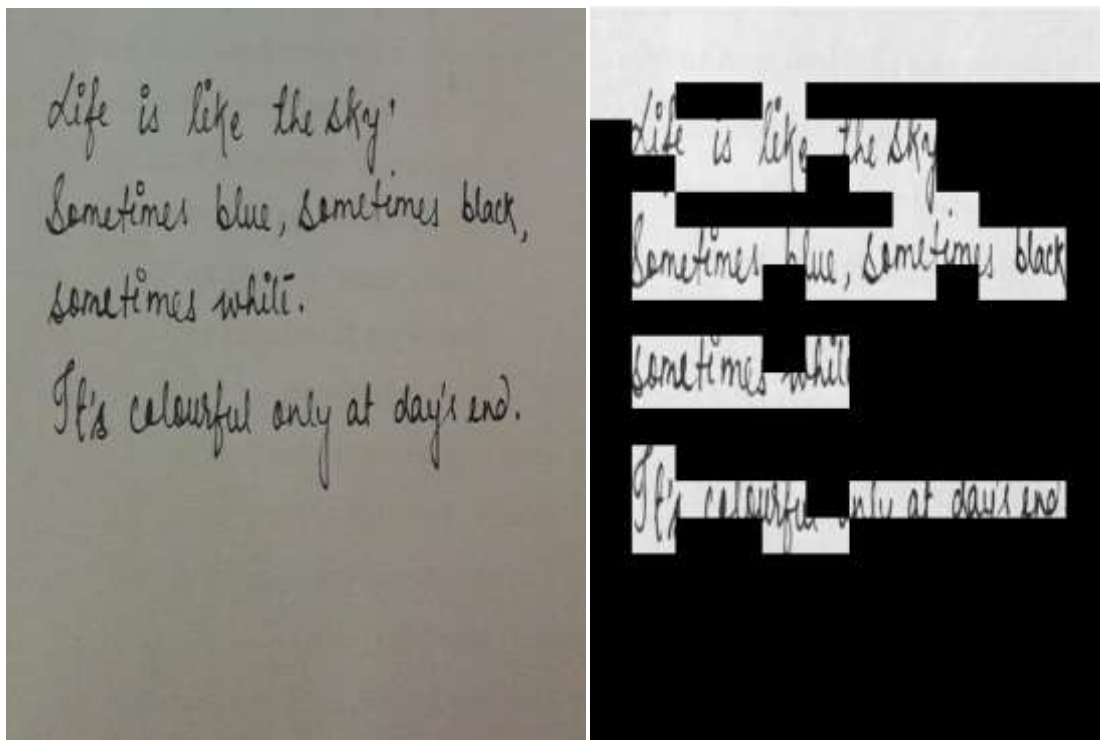 Life is like the sky'
Sometimes blue, sometimes black,
sometimes white.
It's colourful only at day's end.
Life is like the sky
Sometimes blue, sometimes black
sometimes
It's colourful only at day's end